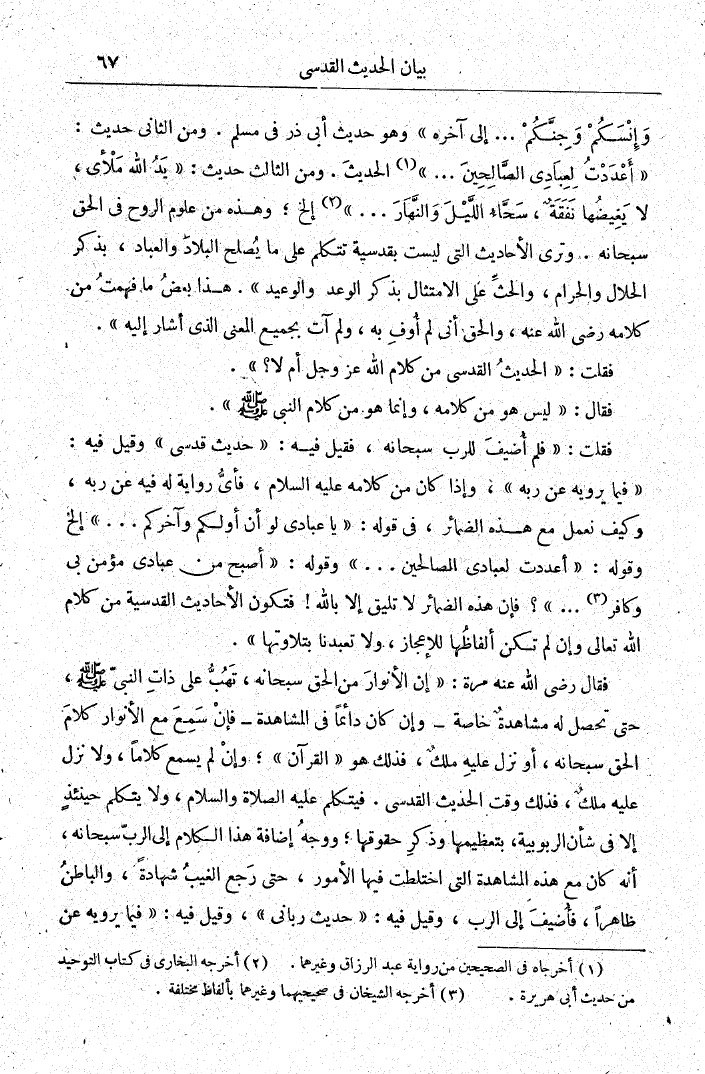 بيان الحديث القدسى ٦٧
وَإِنْسَكُمْ وَجِنَّكُمْ ... إلى آخره » وهو حديث أبى ذر فى مسلم . ومن الثانى حديث :
« أَعْدَدْتُ لِعِبَادِى الصَّالِحِينَ ... »(١) الحديثَ . ومن الثالث حديث : « يَدُ الله مَلْأَى ،
لا يَغِيضُها نَفَقَةٌ ، سَحَّاءُ اللَّيْلَ وَالنَّهَارَ ... »(٢) إلخ ؛ وهـذه من علوم الروح فى الحق
سبحانه . وترى الأحاديث التى ليست بقدسية تتكلم على ما يُصلح البلادَ والعباد ، بذكر
الحلال والحرام ، والحثِّ على الامتثال بذكر الوعد والوعيد » . هـذا بعضُ ما فهمتُ من
كلامه رضى الله عنه ، والحق أنى لم أُوفِ به ، ولم آت بجميع المعنى الذى أشار إليه » .
فقلت : « الحديثُ القدسى من كلام الله عز وجل أم لا؟ » .
فقال : « ليس هو من كلامه ، وإنما هو من كلام النبى ﷺ » .
فقلت : « فلم أُضيفَ للرب سبحانه ، فقيل فيـه : « حديث قدسى » وقيل فيه :
« فيما يرويه عن ربه » ، وإذا كان من كلامه عليه السلام ، فأىُّ رواية له فيه عن ربه ،
وكيف نعمل مع هـذه الضمائر ، فى قوله : « يا عبادى لو أن أولكم وآخركم ... » إلخ
وقوله : « أعددت لعبادى الصالحين ... » وقوله : « أصبح من عبادى مؤمن بى
وكافر(٣) ... » ؟ فإن هذه الضمائر لا تليق إلا بالله ! فتكون الأحاديث القدسية من كلام
الله تعالى وإن لم تـكن ألفاظُها للإعجاز ، ولا تعبدنا بتلاوتها » .
فقال رضى الله عنه مرة : « إن الأنوارَ من الحق سبحانه ، تَهُبُّ على ذاتِ النبىّ ﷺ ،
حتى تحصل له مشاهدةٌ خاصة – وإن كان دائماً فى المشاهدة – فإنْ سَمِعَ مع الأنوار كلامَ
الحق سبحانه ، أو نزل عليهِ ملكٌ ، فذلك هو « القرآن » ؛ وإنْ لم يسمع كلاماً ، ولا نزل
عليه ملكٌ ، فذلك وقت الحديث القدسى . فيتكلم عليه الصلاة والسلام ، ولا يتكلم حينئذٍ
إلا فى شأن الربوبية، بتعظيمها وذكرِ حقوقها ؛ ووجهُ إضافة هذا الـكلام إلى الربّ سبحانه ،
أنه كان مع هذه المشاهدة التى اختلطت فيها الأمور ، حتى رَجع الغيبُ شهادةً ، والباطنُ
ظاهراً ، فأُضيفَ إلى الرب ، وقيل فيه : « حديث ربانى » ، وقيل فيه : « فيما يرويه عن
(١) أخرجاه فى الصحيحين من رواية عبد الرزاق وغيرهما . (٢) أخرجه البخارى فى كتاب التوحيد
من حديث أبى هريرة . (٣) أخرجه الشيخان فى صحيحيهما وغيرهما بألفاظ مختلفة .